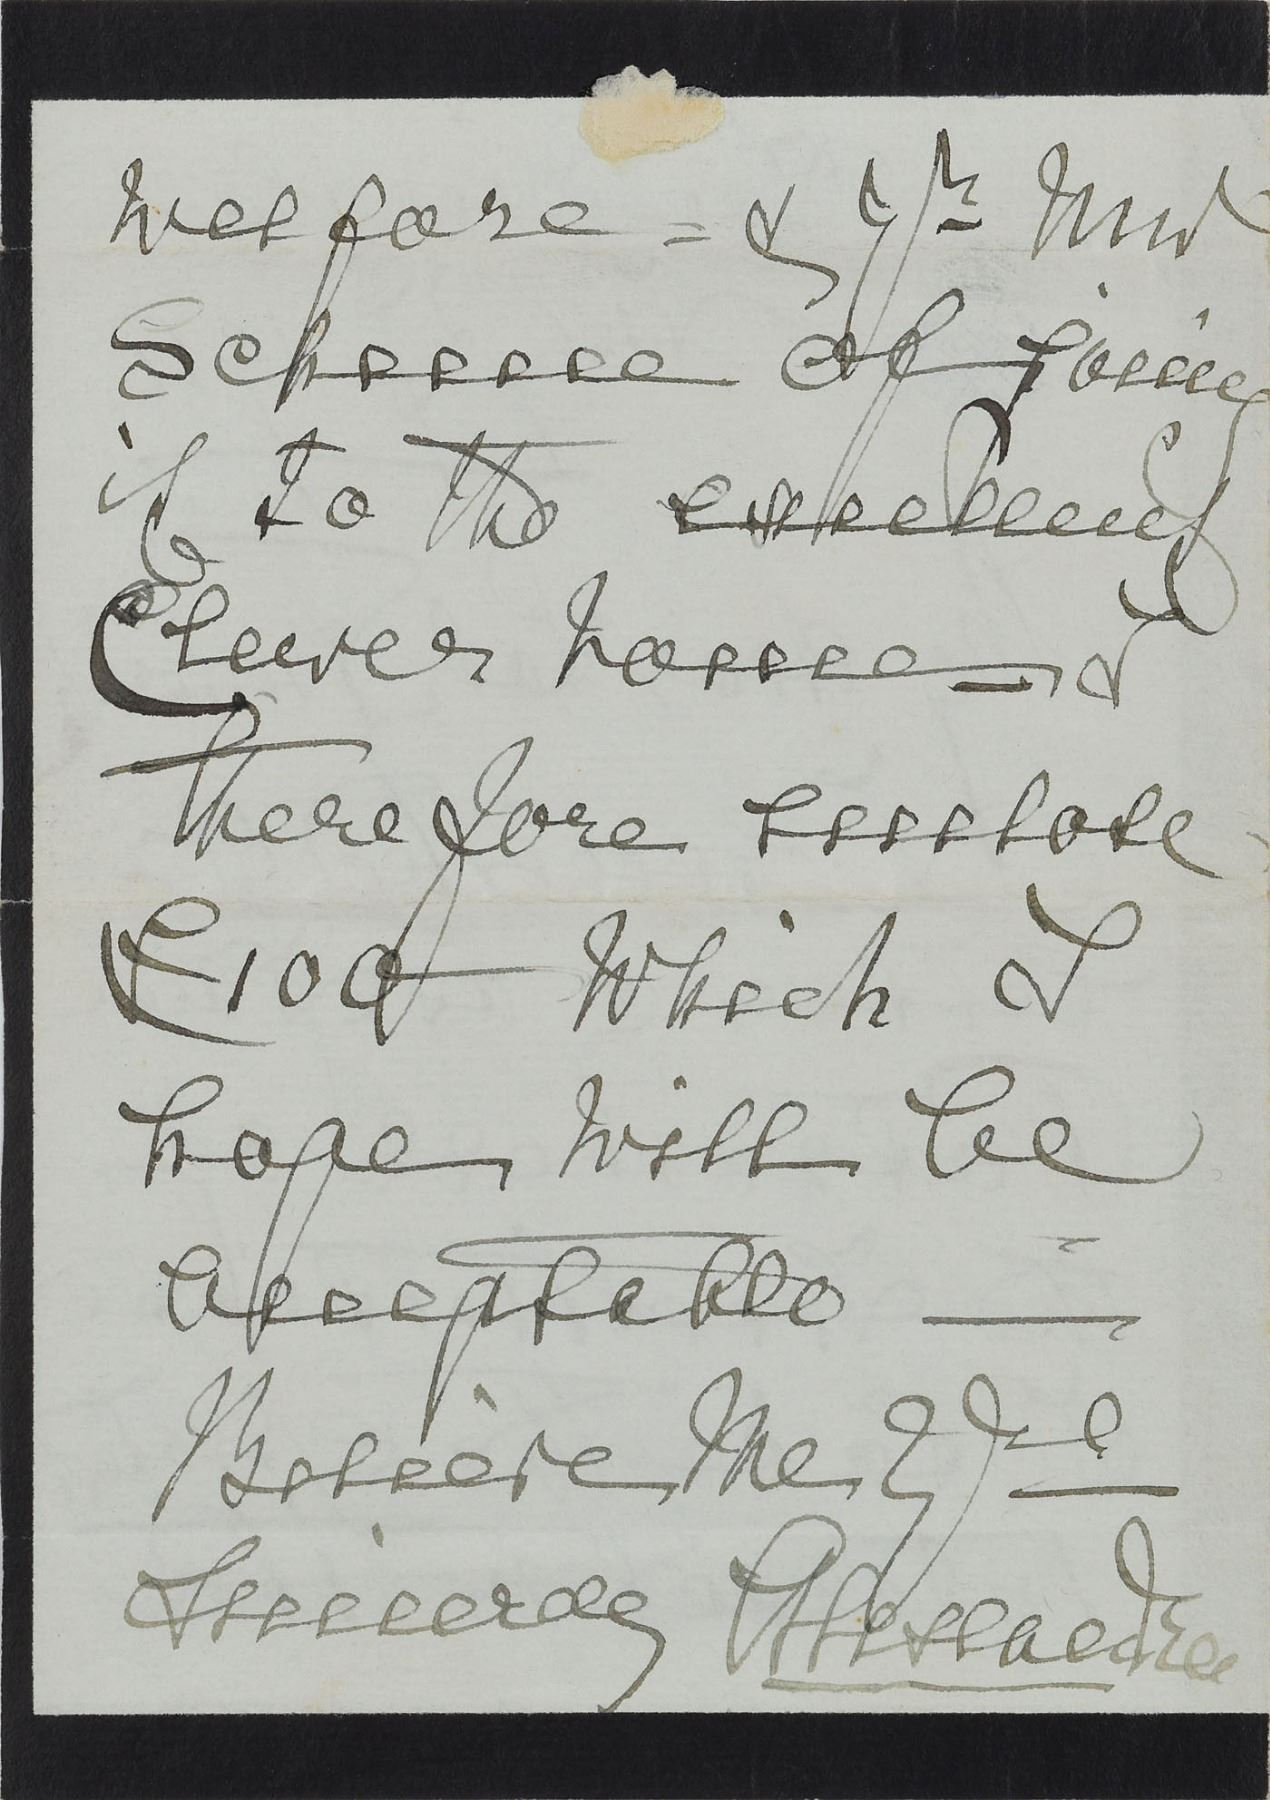 welfare = & yr new
Scheme of joining
it to the excellent
Clewer house — I
therefore enclose
£100 — which I
hope will be
acceptable —
Believe me yrs
sincerely Alexandra